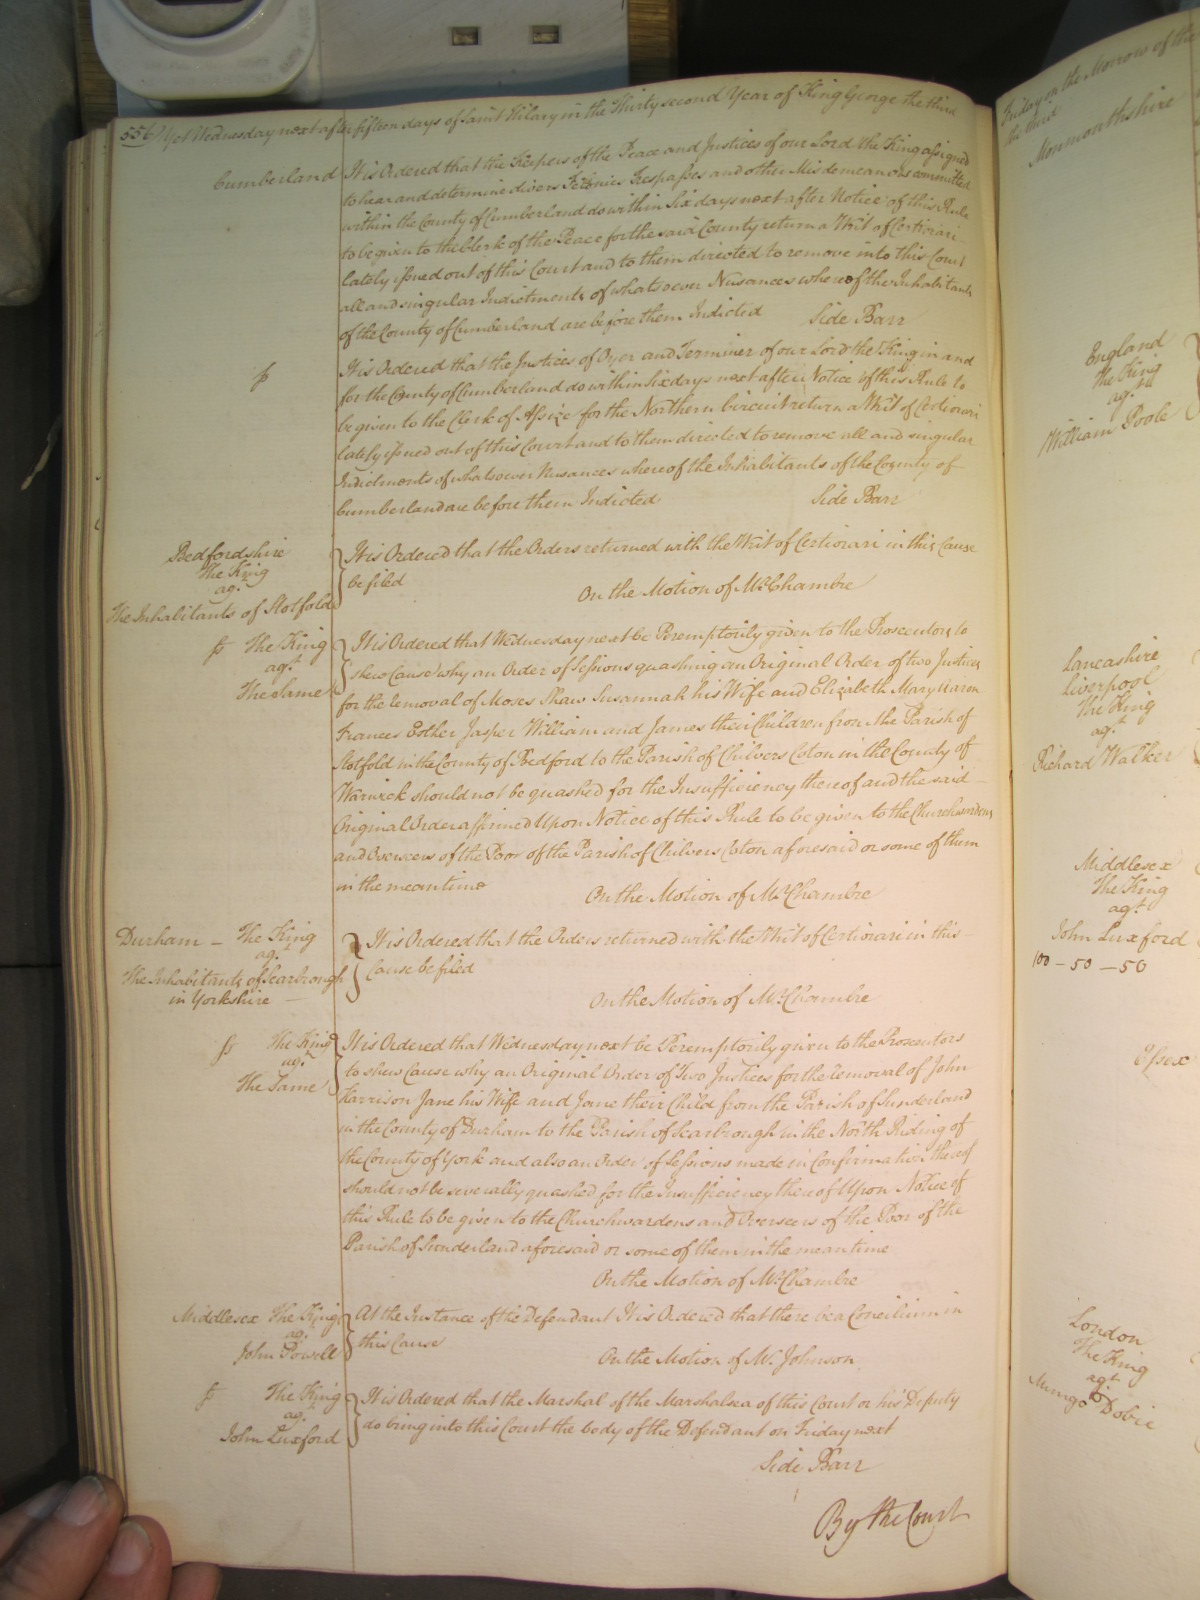 556 Yet Wednesday next after fifteen days of Saint Hilary in the Thirty second Year of King George the third
Cumberland
It is Ordered that the Keepers of the Peace and Justices of our Lord the King assigned
to hear and determine divers Felonies Trespasses and other Misdemeanors committed
within the County of Cumberland do within Six days next after Notice of this Rule
to be given to the Clerk of the Peace for the said County return a Writ of Certiorari
lately issued out of this Court and to them directed to remove into this Court
all and singular Indictments of whatsoever Nusances whereof the Inhabitants
of the County of Cumberland are before them Indicted Side Barr
It is Ordered that the Justices of Oyer and Terminer of our Lord the King in and
for the County of Cumberland do within Six days next after Notice of this Rule to
be given to the Clerk of Assize for the Northern Circuit return a Writ of Certiorari
lately issued out of this Court and to them directed to remove all and singular
Indictments of whatsoever Nusances whereof the Inhabitants of the County of
Cumberland are before them Indicted Side Barr
Bedfordshire
The King
agt
The Inhabitants of Stotfold
It is Ordered that the Orders returned with the Writ of Certiorari in this Cause
be filed
On the Motion of Mr Chambre
The King
agt
The Same
It is Ordered that Wednesday next be Peremptorily given to the Prosecutors to
shew Cause why an Order of Sessions quashing an Original Order of two Justices
for the removal of Moses Shaw Susannah his Wife and Elizabeth Mary Aaron
Frances Esther Jasper William and James their Children from the Parish of
Stotfold in the County of Bedford to the Parish of Chilvers Coton in the County of
Warwick should not be quashed for the Insufficiency thereof and the said
Original Order affirmed Upon Notice of this Rule to be given to the Churchwardens
and Overseers of the Poor of the Parish of Chilvers Coton aforesaid or some of them
in the mean time
On the Motion of Mr Chambre
Durham - The King
agt
The Inhabitants of Scarbrough
in Yorkshire
It is Ordered that the Orders returned with the Writ of Certiorari in this
Cause be filed
On the Motion of Mr Chambre
The King
agt
The Same
It is Ordered that Wednesday next be Peremptorily given to the Prosecutors
to shew Cause why an Original Order of Two Justices for the removal of John
Harrison Jane his Wife and Jane their Child from the Parish of Sunderland
in the County of Durham to the Parish of Scarbrough in the North Riding of
the County of York and also an Order of Sessions made in Confirmation thereof
should not be severally quashed for the Insufficiency thereof Upon Notice of
this Rule to be given to the Churchwardens and Overseers of the Poor of the
Parish of Sunderland aforesaid or some of them in the mean time
On the Motion of Mr Chambre
Middlesex The King
agt
John Powell
At the Instance of the Defendant It is Ordered that there be a Concilium in
this Cause
On the Motion of Mr Johnson
The King
agt
John Luxford
It is Ordered that the Marshal of the Marshalsea of this Court or his Deputy
do bring into this Court the body of the Defendant on Friday next
Side Barr
By the Court
Friday on the Morrow of the
the third
Monmouthshire
England
The King
agt
William Poole
Lancashire
Liverpool
The King
agt
Richard Walker
Middlesex
The King
agt
John Luxford
100 - 50 - 50
Essex
London
The King
agt
Mungo Dobie